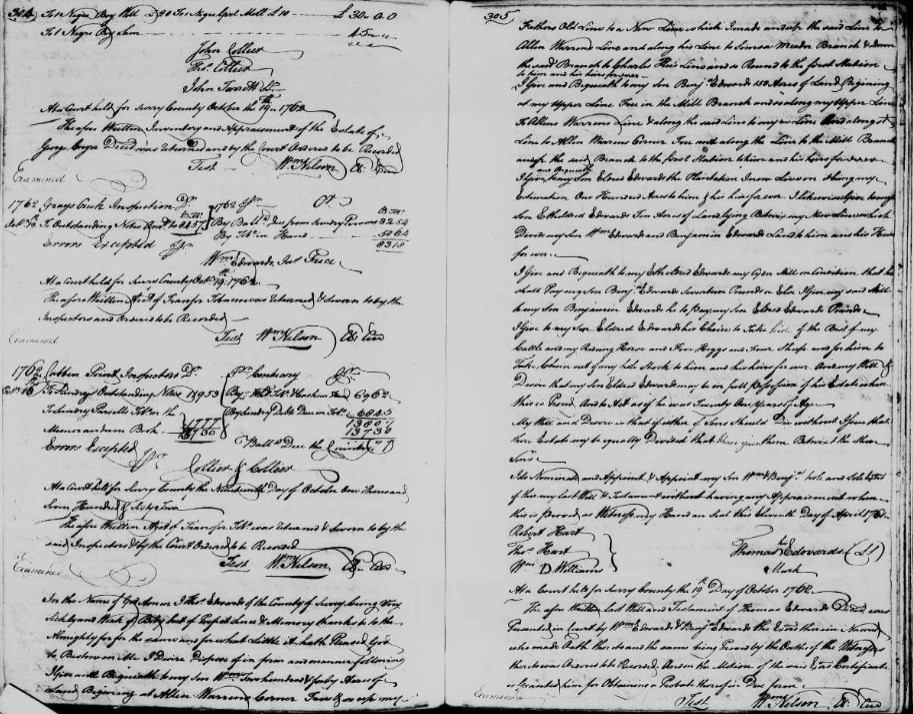 304
To 1 Negro Boy Will £20 To 1 Negro Girl Moll £10 £ 30.0.0
To 1 Negro Boy Sam 45
John Collier
Thos. Collier
John
At a Court held for Surry County October the 19th 1762
The afore Written Inventory and Appraisement of the Estate of
Decd. was returned and by the Court Ordered to be Recorded
Test Wm. Nelson Cl. Cur
Examined
1762 Grays Creek Inspection Dr.
To Outstanding Notes
By Ball. Due from Sundry Persons 3254
By Tobo. in Hand 5064
8318
Errors Excepted
Wm. Edwards
At a Court held for Surry County Octor. 19th 1762
The afore Written Acct. of Transfer Tobacco was returned & Sworn to by the
Inspectors and Ordered to be Recorded
Test Wm. Nelson Cl. Cur
Examined
1762 Cobham Point Inspectors Dr. Pr. Contrary
To Sundry Outstanding Notes 11953 6962
To Sundry Tobo. in the By Sundry Debts Due in Tobo. 6845
Memorandum Book 1777 13807
13730 13730
Errors Excepted Ball. Due the
Collier & Collier
At a Court held for Surry County the Nineteenth Day of October One Thousand
Seven Hundred & Sixty Two
The afore Written Acct. of Transfer Tobo. was Returned & Sworn to by the
said Inspectors & by the Court Ordered to be Recorded
Test Wm. Nelson Cl. Cur
Examined
In the Name of God Amen I Thos. Edwards of the County of Surry being Very
Sick and Weak of Body but of Perfect Sence & Memory thanks be to the
Almighty for the same and for what Little it hath Pleased God
to Bestow on Me I Desire Dispose of in form and manner following
I Give and Bequeath to my Son Wm. Two hundred & forty Acres of
Land Begining at Allen Warrens Corner Tree & so up my
305
Fathers Old Line to a New Line which I made and up the said Line to
Allen Warrens Line and along his Line to Meadow Branch & down
the said Branch to Charles Line and so Round to the first Station
to him and his heirs for ever
I Give and Bequeath to my Son Benja. Edwards 150 Acres of Land Begining
at my Upper Line Tree in the Mill Branch and so along my Upper Line
To Allens Warrens Line & along the said Line to my Line and along
Line to Allen Warrens Corner Tree and along the Line to the Mill Branch
and up the said Branch to the first Station to him and his heirs for ever
I Give and Bequeath to my Son Eldred Edwards the Plantation I now Live on
Estimation One Hundred Acres to him & his heirs for ever I Likewise Give to my
Son Etheldred Edwards Ten Acres of Land lying Betwixt my New Line which
Divides my Son Wm. Edwards and Benjamin Edwards Land to him and his Heirs
for ever
I Give and Bequeath to my Etheldred Edwards my Cyder Mill on Condition that he
shall Pay my Son Benja. Edwards Seventeen Pounds or Else I Give my said Mill
to my Son Benjamin Edwards he to Pay my Son Eldred Edwards Pounds
I Give to my Son Eldred Edwards his Choice to Take of the Best of my
Cattle and my Riding Horse and Five Hoggs and Four Sheep and for him to
Take Choice out of my hole Stock to him and his heirs for ever And my Will &
Desire that my Son Eldred Edwards may be in full Possession of his Estate when
this is Proved And to Act as if he was Twenty One Years of Age
My Will and Desire is that if either of Sons Should Die without Issue that
there Estate may be equally Divided that I give them Betwixt the other
Sons
I do Nominate and Appoint & Appoint my Son Wm. & Benja. hole and Sole Extrs.
of this my last Will & Testament without having any Appraisement when
this is Proved as Witness my Hand an Seal this Eleventh Day of April 176
Robert Hart
Thos. Hart Thomas Edwards (LS)
Wm. D. Williams Mark
At a Court held for Surry County the 19th Day of October 1762
The afore Written last Will and Testament of Thomas Edwards Decd. was
Presented in Court by Wm. Edwards & Benja. Edwards the Extrs. therein Named
who made Oath thereto and the same being Proved by the Oaths of the Witnesses
thereto was Ordered to be Recorded And on the Motion of the said Extrs. Certificate
is granted them for Obtaining a Probate thereof in Due form
Test Wm. Nelson Cl. Cur
Examined